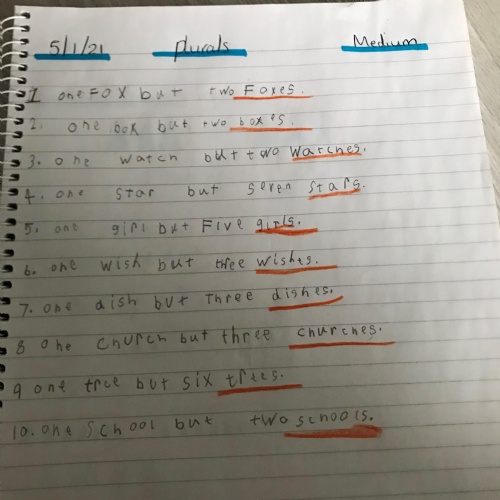 5/1/21 plurals Medium
1. one Fox but two Foxes.
2. one box but two boxes.
3. one watch but two watches.
4. one star but seven stars.
5. one girl but Five girls.
6. one wish but three wishes.
7. one dish but three dishes.
8 one church but three churches.
9 one tree but six trees.
10. one school but two schools.